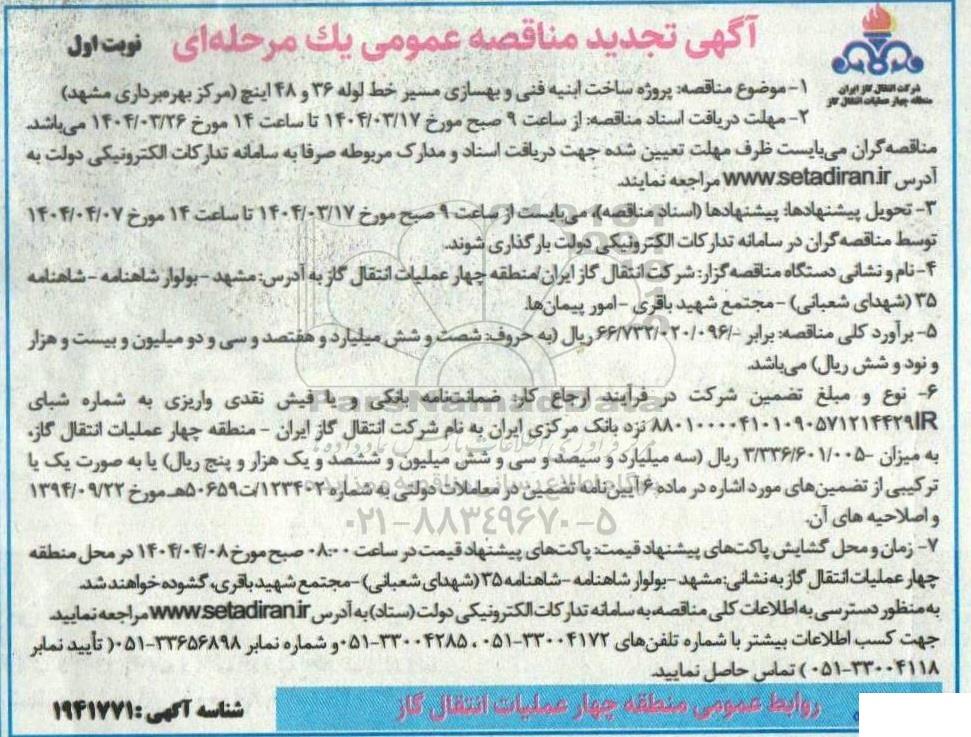 آگهی تجدید مناقصه عمومی یك مرحله‌ای
نوبت اول
شرکت انتقال گاز ایران
منطقه چهار عملیات انتقال گاز
۱- موضوع مناقصه: پروژه ساخت ابنیه فنی و بهسازی مسیر خط لوله ۳۶ و ۴۸ اینچ (مرکز بهره‌برداری مشهد)
۲- مهلت دریافت اسناد مناقصه: از ساعت ۹ صبح مورخ ۱۴۰۴/۰۳/۱۷ تا ساعت ۱۴ مورخ ۱۴۰۴/۰۳/۲۶ می‌باشد.
مناقصه‌گران می‌بایست ظرف مهلت تعیین شده جهت دریافت اسناد و مدارک مربوطه صرفا به سامانه تدارکات الکترونیکی دولت به
آدرس www.setadiran.ir مراجعه نمایند.
۳- تحویل پیشنهادها: پیشنهادها (اسناد مناقصه)، می‌بایست از ساعت ۹ صبح مورخ ۱۴۰۴/۰۳/۱۷ تا ساعت ۱۴ مورخ ۱۴۰۴/۰۴/۰۷
توسط مناقصه‌گران در سامانه تدارکات الکترونیکی دولت بارگذاری شوند.
۴- نام و نشانی دستگاه مناقصه‌گزار: شرکت انتقال گاز ایران/منطقه چهار عملیات انتقال گاز به آدرس: مشهد - بولوار شاهنامه - شاهنامه
۳۵ (شهدای شعبانی) - مجتمع شهید باقری - امور پیمان‌ها.
۵- برآورد کلی مناقصه: برابر -/۶۶/۷۳۲/۰۲۰/۰۹۶ ریال (به حروف: شصت و شش میلیارد و هفتصد و سی و دو میلیون و بیست و هزار
و نود و شش ریال) می‌باشد.
۶- نوع و مبلغ تضمین شرکت در فرآیند ارجاع کار: ضمانت‌نامه بانکی و یا فیش نقدی واریزی به شماره شبای
IR۸۸۰۱۰۰۰۰۴۱۰۱۰۹۰۵۷۱۲۱۴۴۲۹ نزد بانک مرکزی ایران به نام شرکت انتقال گاز ایران - منطقه چهار عملیات انتقال گاز.
به میزان -۳/۳۳۶/۶۰۱/۰۰۵ ریال (سه میلیارد و سیصد و سی و شش میلیون و ششصد و یک هزار و پنج ریال) یا به صورت یک یا
ترکیبی از تضمین‌های مورد اشاره در ماده ۶ آیین‌نامه تضمین در معاملات دولتی به شماره ۱۲۳۴۰۲/ت۵۰۶۵۹هـ مورخ ۱۳۹۴/۰۹/۲۲
و اصلاحیه های آن.
۷- زمان و محل گشایش پاکت‌های پیشنهاد قیمت: پاکت‌های پیشنهاد قیمت در ساعت ۰۸:۰۰ صبح مورخ ۱۴۰۴/۰۴/۰۸ در محل منطقه
چهار عملیات انتقال گاز به نشانی: مشهد - بولوار شاهنامه - شاهنامه ۳۵ (شهدای شعبانی) - مجتمع شهید باقری، گشوده خواهند شد.
به منظور دسترسی به اطلاعات کلی مناقصه، به سامانه تدارکات الکترونیکی دولت (ستاد) به آدرس www.setadiran.ir مراجعه نمایید.
جهت کسب اطلاعات بیشتر با شماره تلفن‌های ۳۳۰۰۴۱۷۲-۰۵۱ ، ۳۳۰۰۴۲۸۵-۰۵۱ و شماره نمابر ۳۳۶۵۶۸۹۸-۰۵۱ ( تأیید نمابر
۳۳۰۰۴۱۱۸-۰۵۱ ) تماس حاصل نمایید.
روابط عمومی منطقه چهار عملیات انتقال گاز
شناسه آگهی : ۱۹۴۱۷۷۱
ParsNamadData
۰۲۱-۸۸۳۴۹۶۷۰-۵